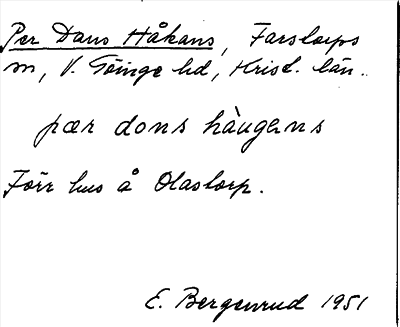 Per Dans Håkans, Farstorps
sn, V. Göinge hd, Krist. län.
pær dons hàugens
Förr hus å Olastorp.
E. Bergenrud 1951